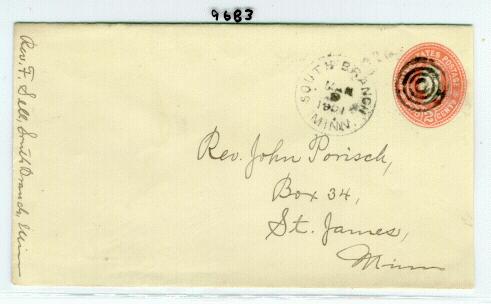 9683
Rev. F. Sell, South Branch, Minn
SOUTH BRANCH
JAN
9
1901
MINN.
STATES POSTAGE
2 CENTS
Rev. John Porisch,
Box 34,
St. James,
Minn